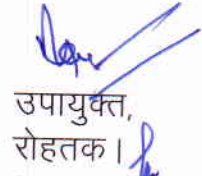 उपायुक्त,
रोहतक।